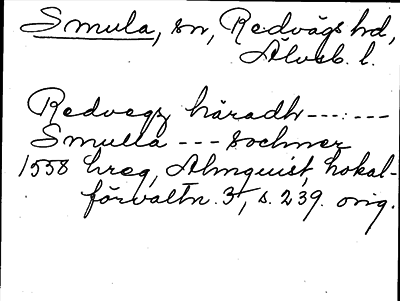 Smula, sn, Redvägs hd,
Älvsb. l.
Redvegz häradh ---:---
Smulla --- sochner
1558 hreg, Almquist, Lokal-
förvaltn. 3, s. 239. orig.